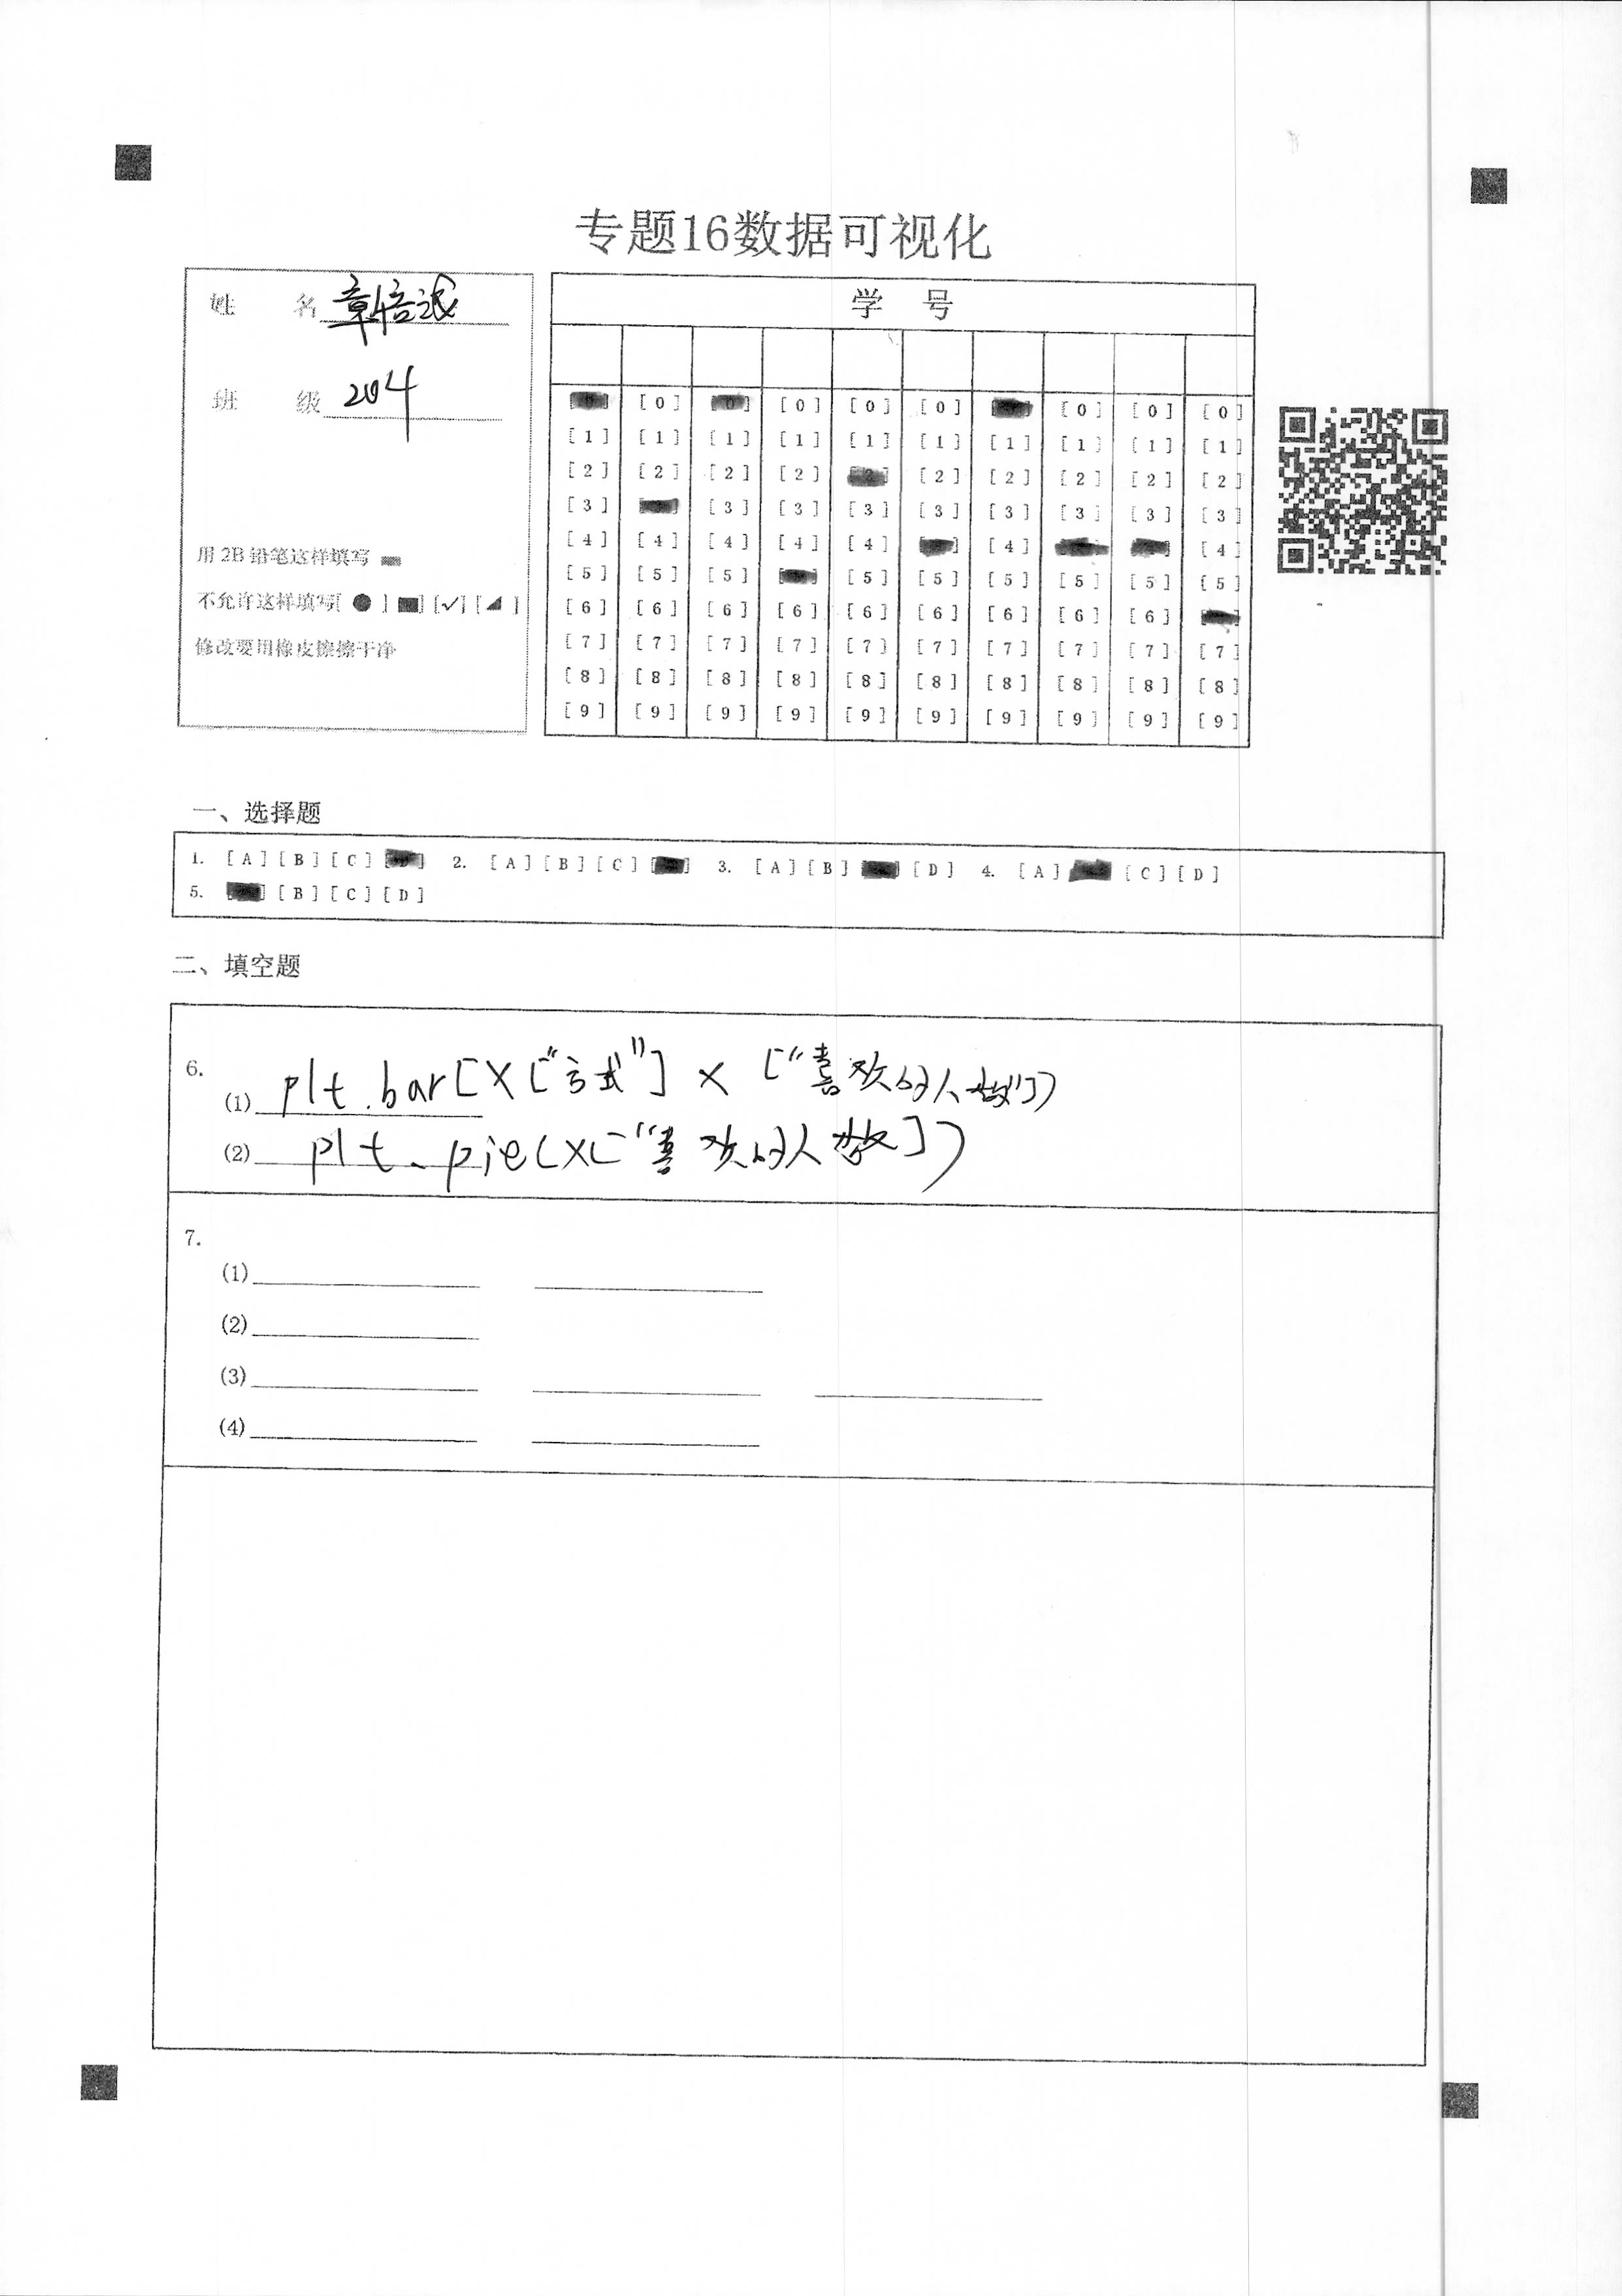 专题16数据可视化
姓 名 章倍诚
班 级 204
用 2B 铅笔这样填写
不允许这样填写[ ● ] [✓] [ ]
修改要用橡皮擦擦干净
学 号
[0] [0] [0] [0] [0] [0]
[1] [1] [1] [1] [1] [1] [1] [1] [1] [1]
[2] [2] [2] [2] [2] [2] [2] [2] [2] [2]
[3] [3] [3] [3] [3] [3] [3] [3] [3]
[4] [4] [4] [4] [4] [4] [4]
[5] [5] [5] [5] [5] [5] [5] [5] [5]
[6] [6] [6] [6] [6] [6] [6] [6] [6]
[7] [7] [7] [7] [7] [7] [7] [7] [7] [7]
[8] [8] [8] [8] [8] [8] [8] [8] [8] [8]
[9] [9] [9] [9] [9] [9] [9] [9] [9] [9]
一、选择题
1. [A] [B] [C] [D] 2. [A] [B] [C] 3. [A] [B] [D] 4. [A] [C] [D]
5. [B] [C] [D]
二、填空题
6.
(1) plt.bar[X["方式"] X ["喜欢的人数"])
(2) plt.pie(X["喜欢的人数])
7.
(1)
(2)
(3)
(4)